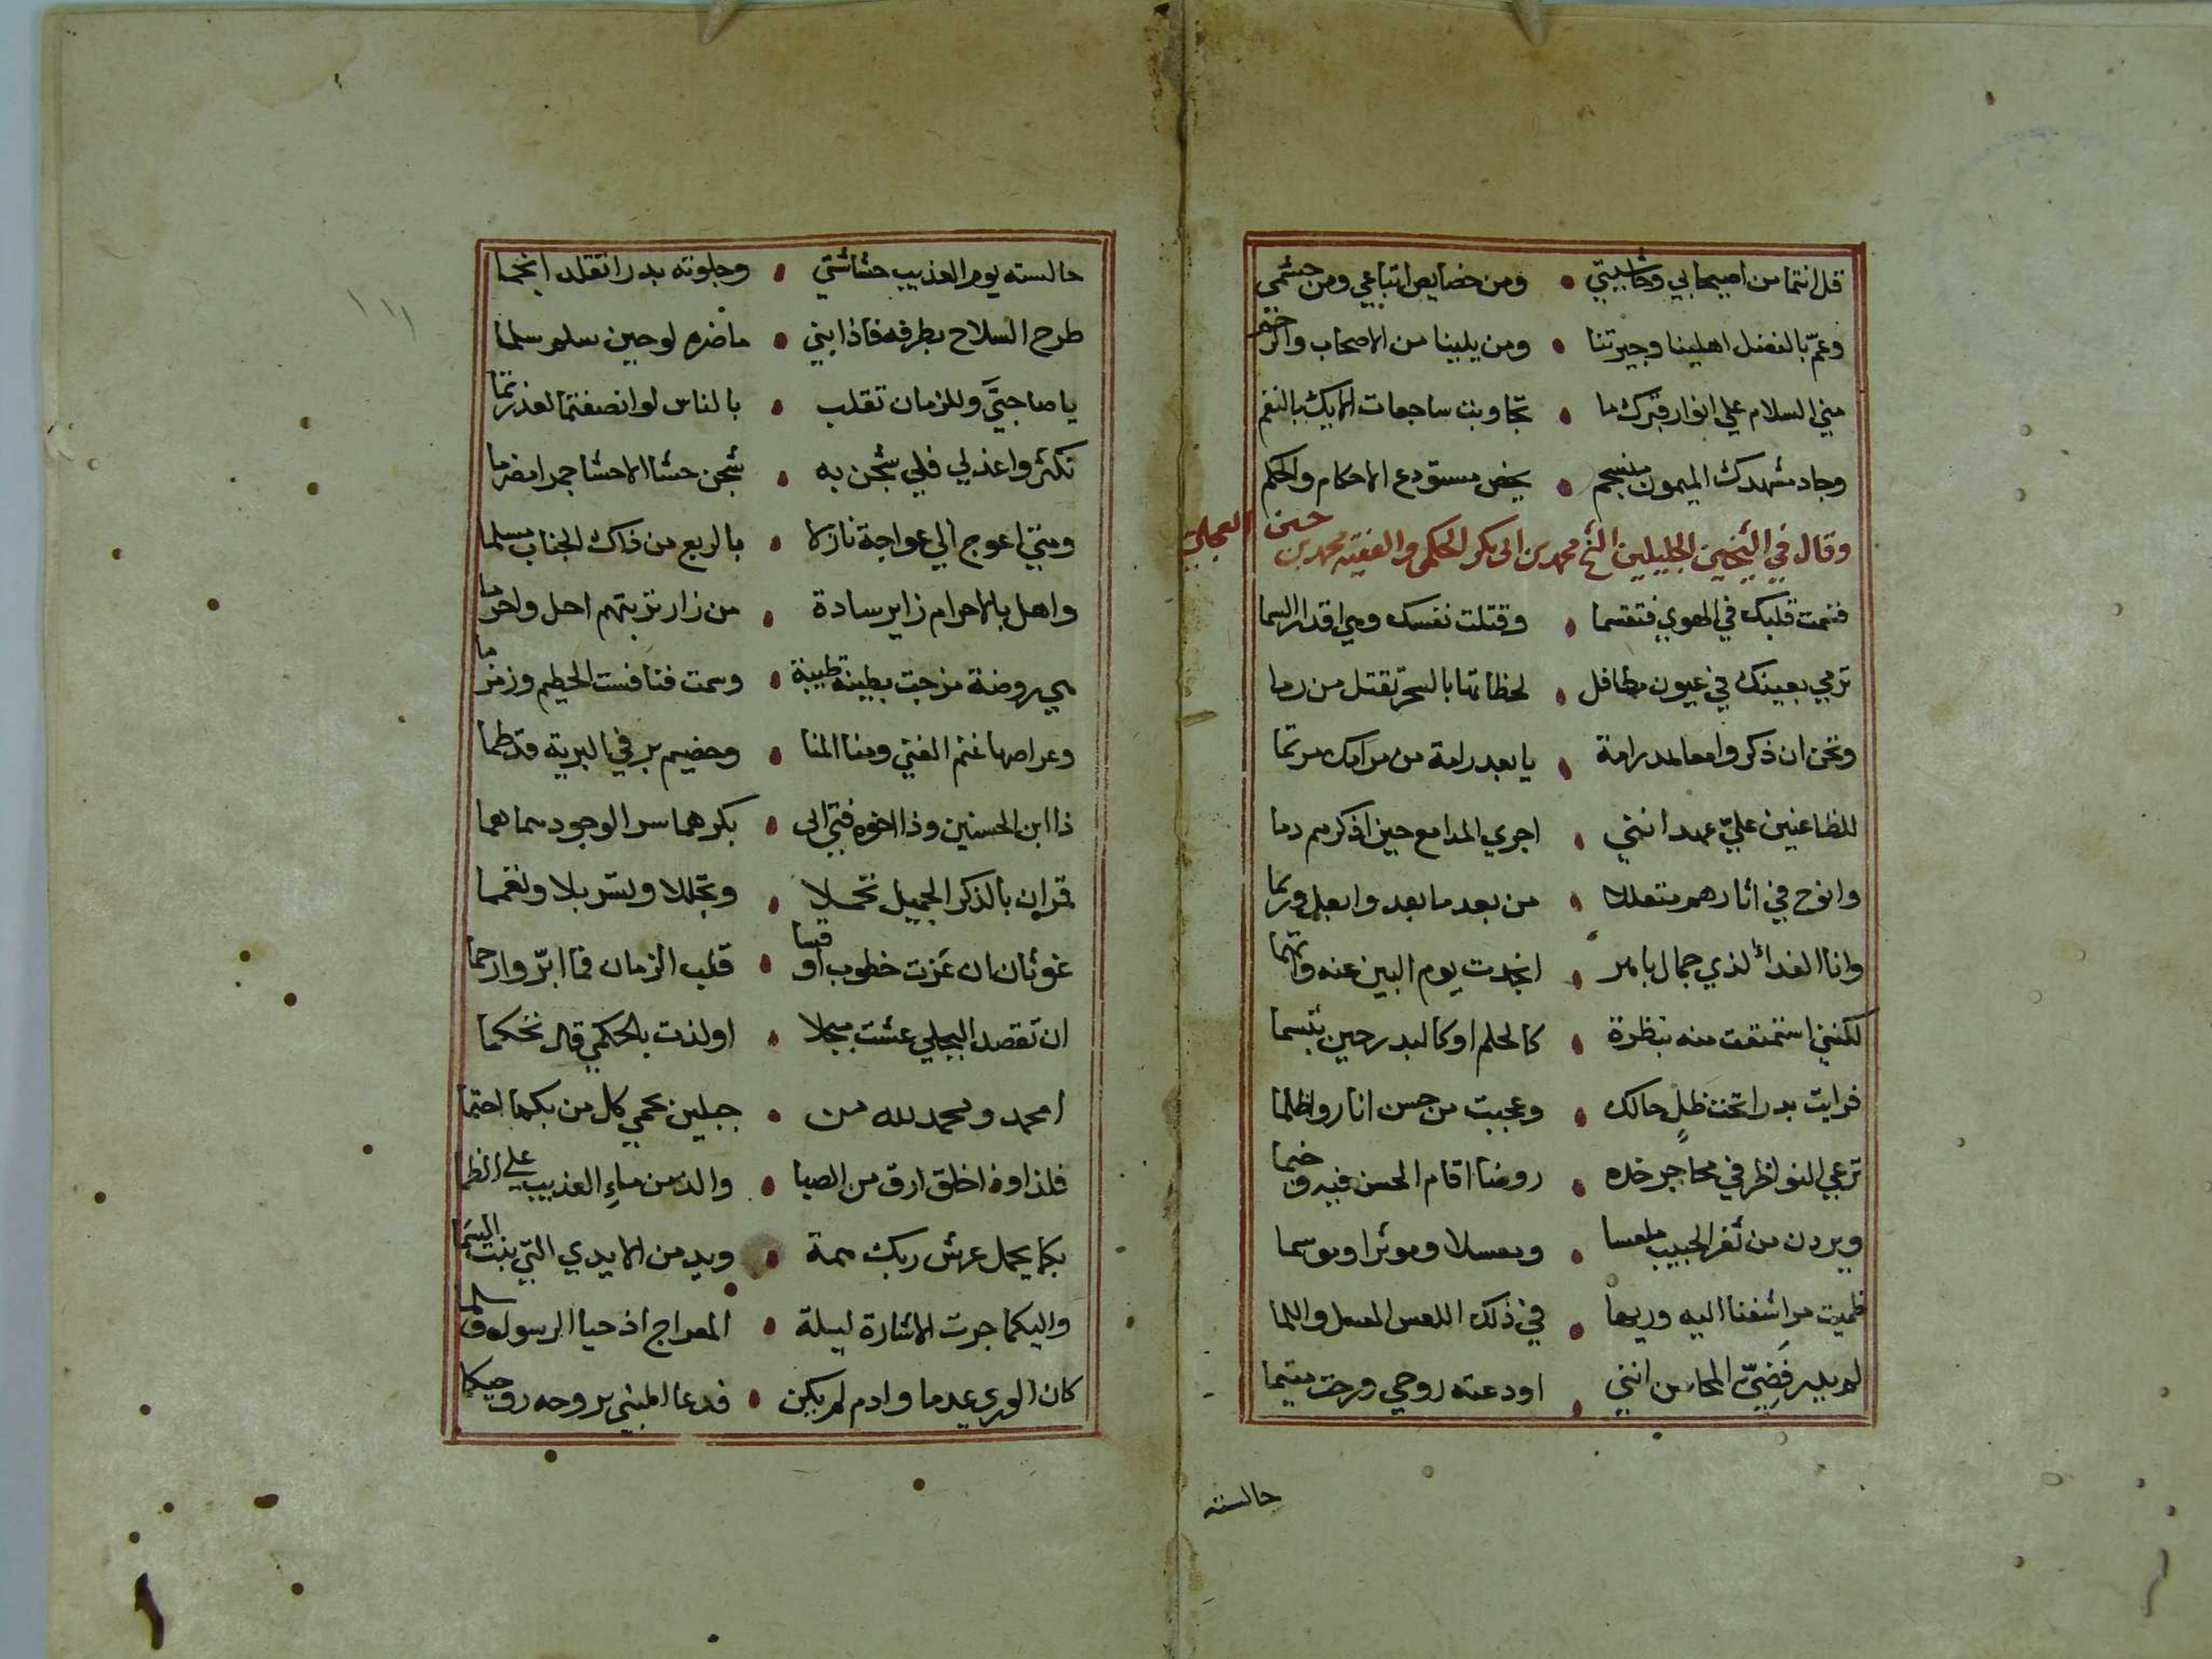 قل انتما من اصيحابي وحاشيتي • ومن خصايص اتباعي ومن حشمي
وعمّ بالفضل اهلينا وجيرتنا • ومن يلينا من الاصحاب والرحم
مني السلام علي انوار قبرك ما • تجاوبت ساجعات الايك بالنغم
وجاد مشهدك الميمون منسجم • يخص مستودع الاحكام والحكم
وقال في الشيخين الجليلين الشيخ محمد بن ابي بكر الحكمي والفقيه محمد بن حسين البجلي
قسمت قلبك في الهوي فتقسما • وقتلت نفسك وهي اقدار السما
ترمي بعينك في عيون مطافل • لحظاتها بالسحر تقتل من رما
وتحن ان ذكروا معالم رامة • يا بعد رامة من مرامك مرتما
للظاعنين عليّ عهد انني • اجري المدامع حين اذكرهم دما
وانوح في اثارهم متعللا • من بعد ما بعدوا بعل وربما
وانا الفداء لذي جمال بامر • انجدت يوم البين عنه واتهما
لكنني استمتعت منه بنظرة • كالحلم او كالبدر حين تبسما
فرايت بدرا تحت ظلٍ حالك • وعجبت من حسن انار واظلما
ترعي النواظر في محاجر خده • روضا اقام الحسن فيه وخيما
ويردن من ثغر الحبيب ملعسا • ومعسلا وموشرا وموسما
فلميت مراشفنا اليه وريها • في ذلك اللعس المعسل واللما
لم يدر فضيّ المحاسن انني • اودعته روحي ورحت متيما
جالسته
جالسته يوم العذيب حشاشتي • وجلوته بدرا تقلد انجما
طرح السلاح بطرفه فاذابني • ما ضره لو حين سلم سلما
يا صاحبيَّ وللزمان تقلب • بالناس لو انصفتما لعذرتما
تكثروا عذلي فلي شجن به • شجن حشا الاحشا جمرا مضرما
ومتي اعوج الي عواجة نازلا • بالربع من ذاك الجناب مسلما
واهل بالاحرام زاير سادة • من زار تربتهم احل واحرما
هي روضة مزجت بطينة طيبة • وسمت فنافست الحطيم وزمزما
وعراصها غنم الغني ومنا المنا • وخضيم بر في البرية قد طما
ذا ابن الحسين وذا اخوه فتي ابي • بكر هما سر الوجود سما هما
قمران بالذكر الجميل تجملا • وتجللا وتسربلا وتغمما
غوثان ان عزت خطوب او قسا • قلب الزمان فما ابرّ وارحما
ان تقصد البجلي عشت مبجلا • او لذت بالحكمي قال تحكما
امحمد ومحمد لله من • جبلين يحمي كل من بكما احتما
فلذا وذ اخلق ارق من الصبا • والذ من ماء العذيب علي الظما
بكما يحمل عرش ربك همة • ويد من الايدي التي بنت السما
واليكما جرت الاشارة ليلة • المعراج اذ حيا الرسول وسلما
كان الوري عدما وادم لم يكن • فدعا المبني بروحه روحيكما
١١١